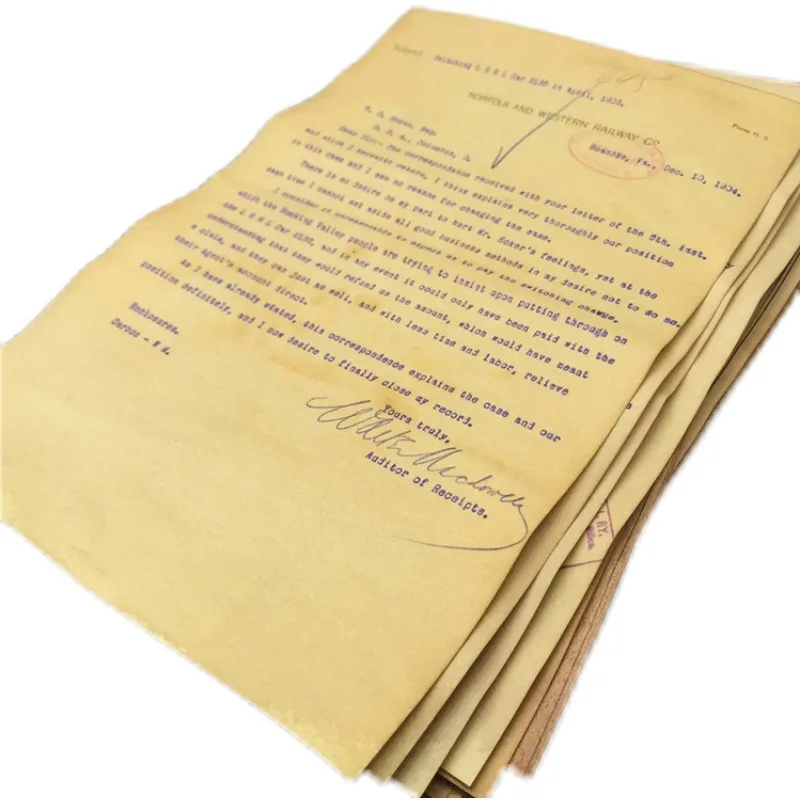 Subject: Switching L E & W Car 2130 in April, 1903.
645
NORFOLK AND WESTERN RAILWAY Co.
Form G. 1.
Roanoke, Va., Dec. 13, 1904.
Esq.,
Columbus, O.
Dear Sir:- The correspondence received with your letter of the 5th. inst.
and which I herewith return, I think explains very thoroughly our position
in this case and I see no reason for changing the same.
There is no desire on my part to hurt Mr. Ecker's feelings, yet at the
same time I cannot set aside all good business methods in my desire not to do so.
I consider it unreasonable to expect us to pay the switching charge,
which the Hocking Valley people are trying to insist upon putting through on
the Car 2130, and in any event it could only have been paid with the
understanding that they would refund us the amount, which would have meant
a claim, and they can just as well, and with less time and labor, relieve
their agent's account direct.
As I have already stated, this correspondence explains the case and our
position definitely, and I now desire to finally close my record.
Yours truly,
Auditor of Receipts.
Enclosures.
RY.